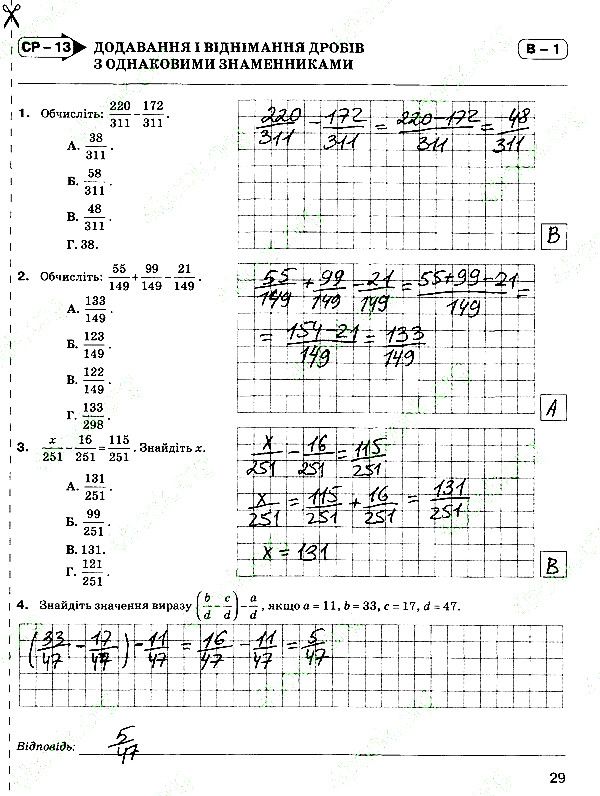 СР – 13 ДОДАВАННЯ І ВІДНІМАННЯ ДРОБІВ В – 1
З ОДНАКОВИМИ ЗНАМЕННИКАМИ
1. Обчисліть: 220/311 − 172/311.
А. 38/311.
Б. 58/311.
В. 48/311.
Г. 38.
220/311 − 172/311 = (220−172)/311 = 48/311
В
2. Обчисліть: 55/149 + 99/149 − 21/149.
А. 133/149.
Б. 123/149.
В. 122/149.
Г. 133/298.
55/149 + 99/149 − 21/149 = (55+99−21)/149 =
= (154−21)/149 = 133/149
А
3. x/251 − 16/251 = 115/251. Знайдіть x.
А. 131/251.
Б. 99/251.
В. 131.
Г. 121/251.
x/251 − 16/251 = 115/251
x/251 = 115/251 + 16/251 = 131/251
x = 131
В
4. Знайдіть значення виразу (b/d − c/d) − a/d, якщо a = 11, b = 33, c = 17, d = 47.
(33/47 − 17/47) − 11/47 = 16/47 − 11/47 = 5/47
Відповідь: 5/47
29